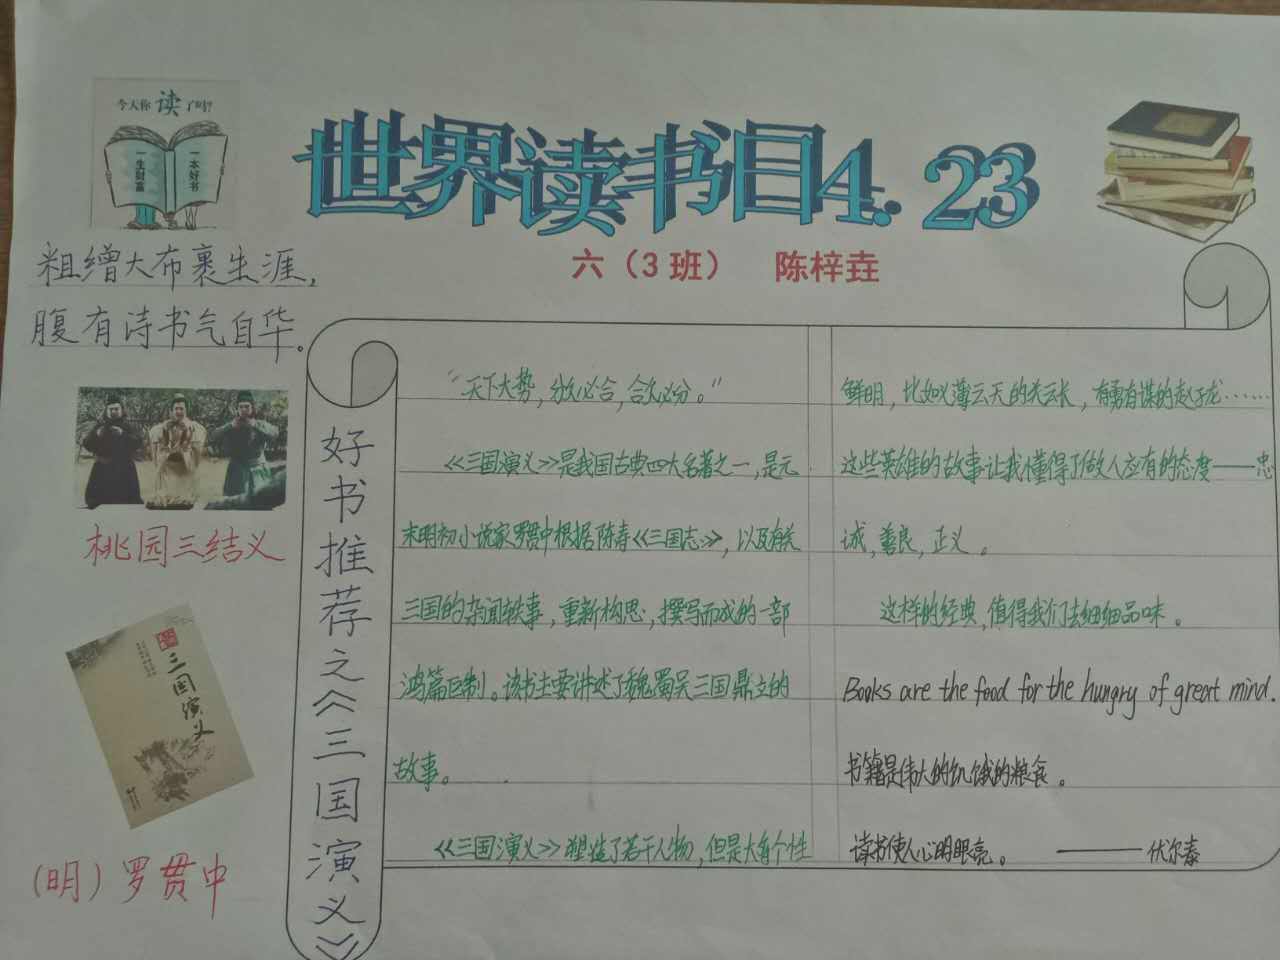 今天你读了吗?
一生财富
一本好书
世界读书日4.23
六（3班） 陈梓垚
粗缯大布裹生涯,
腹有诗书气自华。
桃园三结义
三国演义
(明)罗贯中
好书推荐之《三国演义》
“天下大势,分久必合,合久必分。”
《三国演义》是我国古典四大名著之一,是元
末明初小说家罗贯中根据陈寿《三国志》,以及有关
三国的杂闻轶事,重新构思,撰写而成的一部
鸿篇巨制。该书主要讲述了魏蜀吴三国鼎立的
故事。
《三国演义》塑造了若干人物,但是大都个性
鲜明,比如义薄云天的关云长,有勇有谋的赵子龙……
这些英雄的故事让我懂得了做人应有的态度——忠
诚,善良,正义。
这样的经典,值得我们去细细品味。
Books are the food for the hungry of great mind.
书籍是伟大的饥饿的粮食。
读书使人心明眼亮。 ——伏尔泰